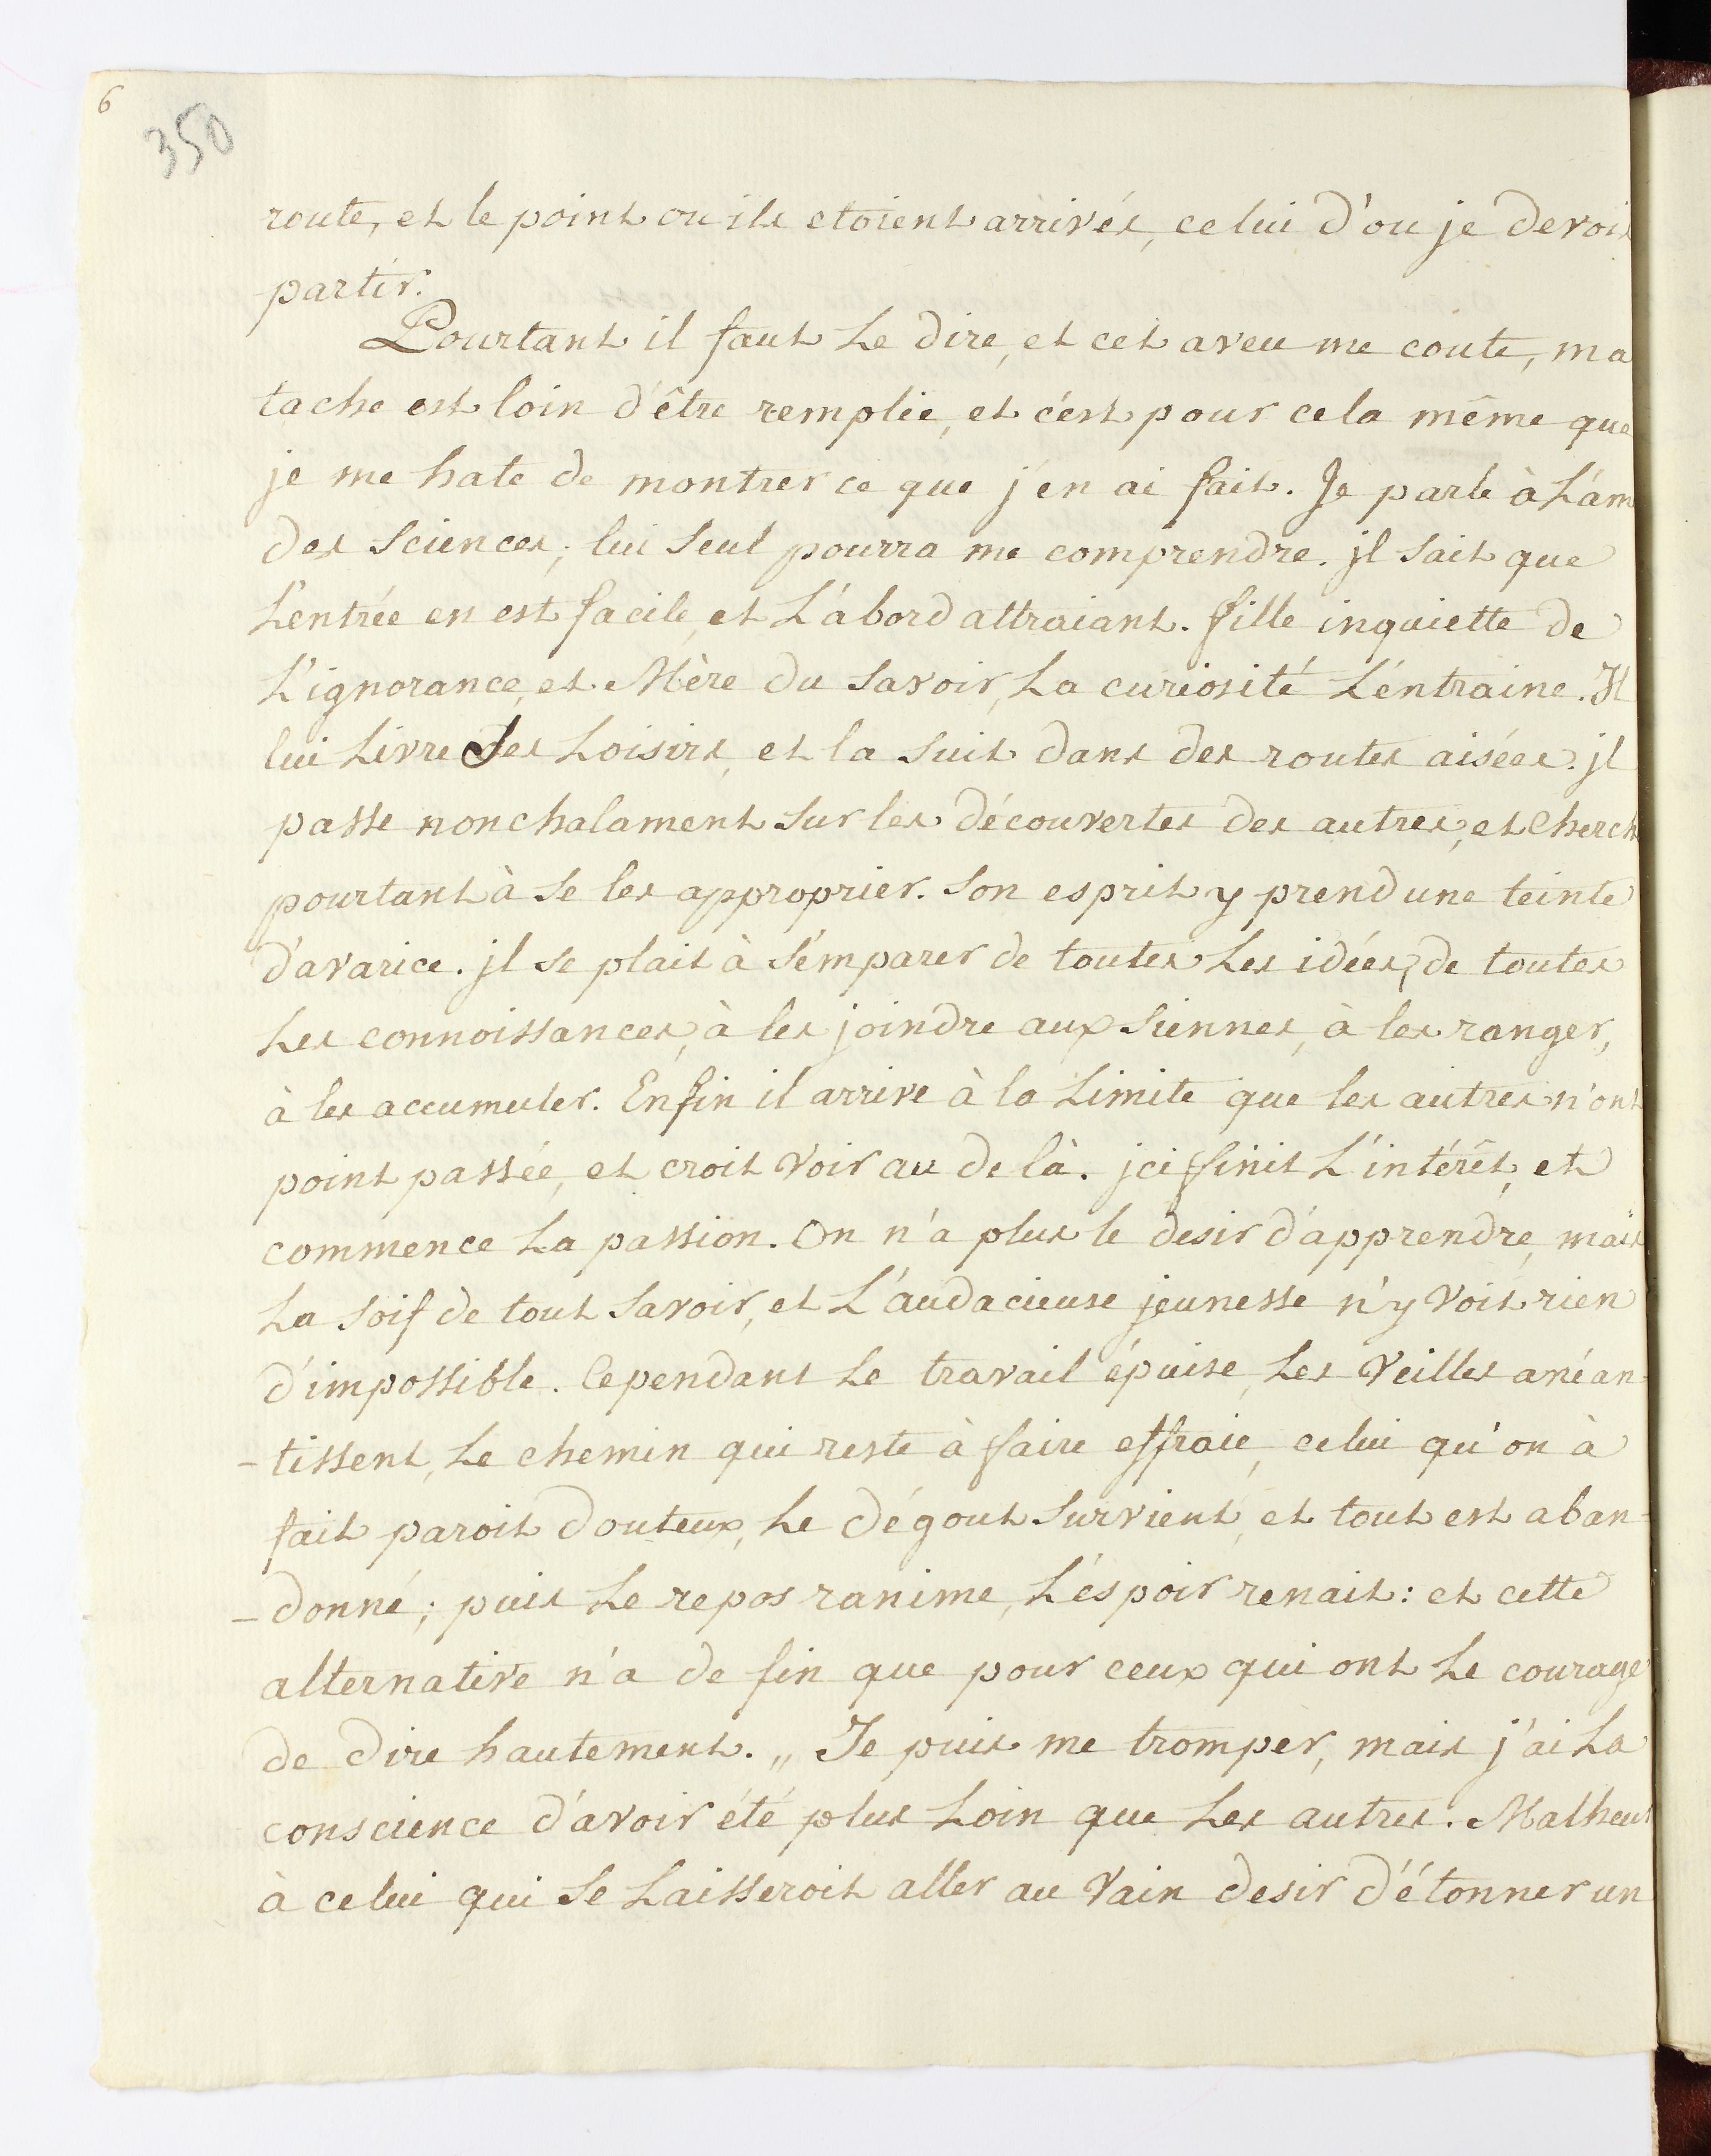 6
350
route, et le point ou ils etoient arrivés, celui d'ou je devois
partir.
Pourtant il faut le dire, et cet aveu me coute, ma
tache est loin d'être remplie, et c'est pour cela même que
je me hate de montrer ce que j'en ai fait. Je parle à l'am
des sciences; lui seul pourra me comprendre. jl sait que
l'entrée en est facile, et l'abord attraiant. fille inquiette de
l'ignorance, et Mère du savoir, la curiosité l'éntraine. Il
lui livre ses loisirs, et la suit dans des routes aisées. jl
passe nonchalament sur les découvertes des autres, et cherch
pourtant à se les approprier. son esprit y prend une teinte
d'avarice. jl se plait à s'émparer de toutes les idées, de toutes
les connoissances, à les joindre aux siennes, à les ranger,
à les accumuler. Enfin il arrive à la limite que les autres n'ont
point passée, et croit voir au de là. jci finit l'intérêt, et
commence la passion. On n'a plus le desir d'apprendre, mais
la soif de tout savoir, et l'audacieuse jeunesse n'y voit rien
d'impossible. Cependant le travail épuise, les veilles anéan-
-tissent, le chemin qui reste à faire effraie, celui qu'on à
fait paroit douteux, le dégout survient, et tout est aban-
-donné; puis le repos ranime, l'éspoir renait: et cette
alternative n'a de fin que pour ceux qui ont le courage
de dire hautement. „ Je puis me tromper, mais j'ai la
conscience d'avoir été plus loin que les autres. Malheur
à celui qui se laisseroit aller au vain desir d'étonner un